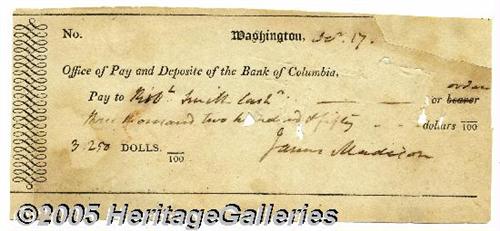 No. Washington, 17.
order
Office of Pay and Deposite of the Bank of Columbia.
Pay to Robt. Smith Cashr. or bearer
three thousand two hundred & fifty dollars /100
3,250 DOLLS. /100 James Madison
©2005 HeritageGalleries